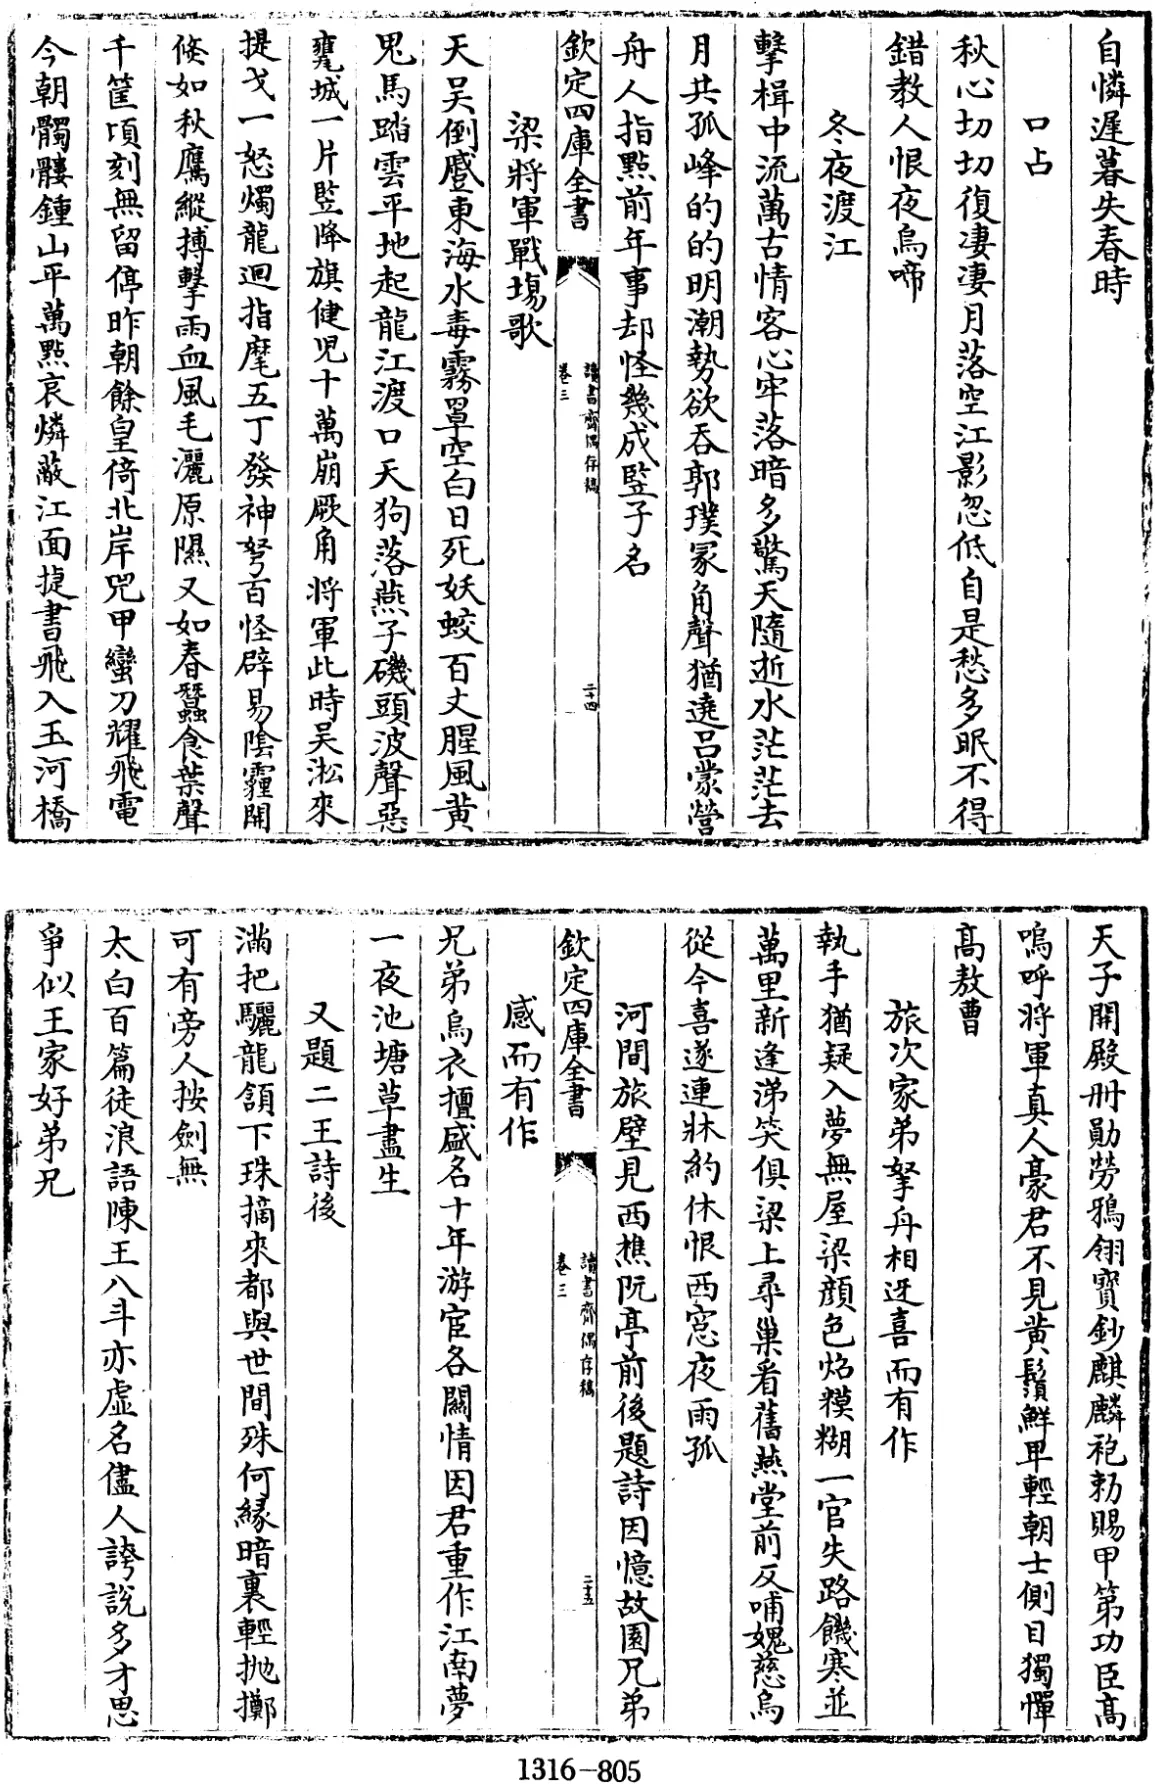 自憐遲暮失春時
口占
秋心切切復凄凄月落空江影忽低自是愁多眠不得
錯教人恨夜烏啼
冬夜渡江
擊楫中流萬古情客心牢落暗多驚天隨逝水茫茫去
月共孤峰的的明潮勢欲吞郭璞冢角聲猶遶呂蒙營
舟人指點前年事却怪幾成豎子名
欽定四庫全書
讀書齋偶存稿
卷三
二十四
梁將軍戰塲歌
天吴倒蹙東海水毒霧罩空白日死妖蛟百丈腥風黄
鬼馬踏雲平地起龍江渡口天狗落燕子磯頭波聲惡
甕城一片豎降旗健児十萬崩厥角將軍此時吴淞來
提戈一怒燭龍迴指麾五丁發神弩百怪辟易陰霾開
倐如秋鷹縱搏擊雨血風毛灑原隰又如春蠶食葉聲
千筐頃刻無留停昨朝餘皇倚北岸兕甲蠻刀耀飛電
今朝髑髏鍾山平萬點哀燐蔽江面捷書飛入玉河橋
天子開殿册勛勞鴉翎寶鈔麒麟袍勅賜甲第功臣高
嗚呼將軍真人豪君不見黄鬚鮮卑輕朝士側目獨憚
高敖曹
旅次家弟拏舟相迓喜而有作
執手猶疑入夢無屋梁顔色焰糢糊一官失路饑寒並
萬里新逢涕笑俱梁上尋巢看舊燕堂前反哺媿慈烏
從今喜遂連牀約休恨西窓夜雨孤
河間旅壁見西樵阮亭前後題詩因憶故園兄弟
欽定四庫全書
讀書齋偶存稿
卷三
二十五
感而有作
兄弟烏衣擅盛名十年游宦各關情因君重作江南夢
一夜池塘草盡生
又題二王詩後
滿把驪龍頷下珠摘來都與世間殊何緣暗裏輕拋擲
可有旁人按劍無
太白百篇徒浪語陳王八斗亦虛名儘人誇說多才思
爭似王家好弟兄
1316-805